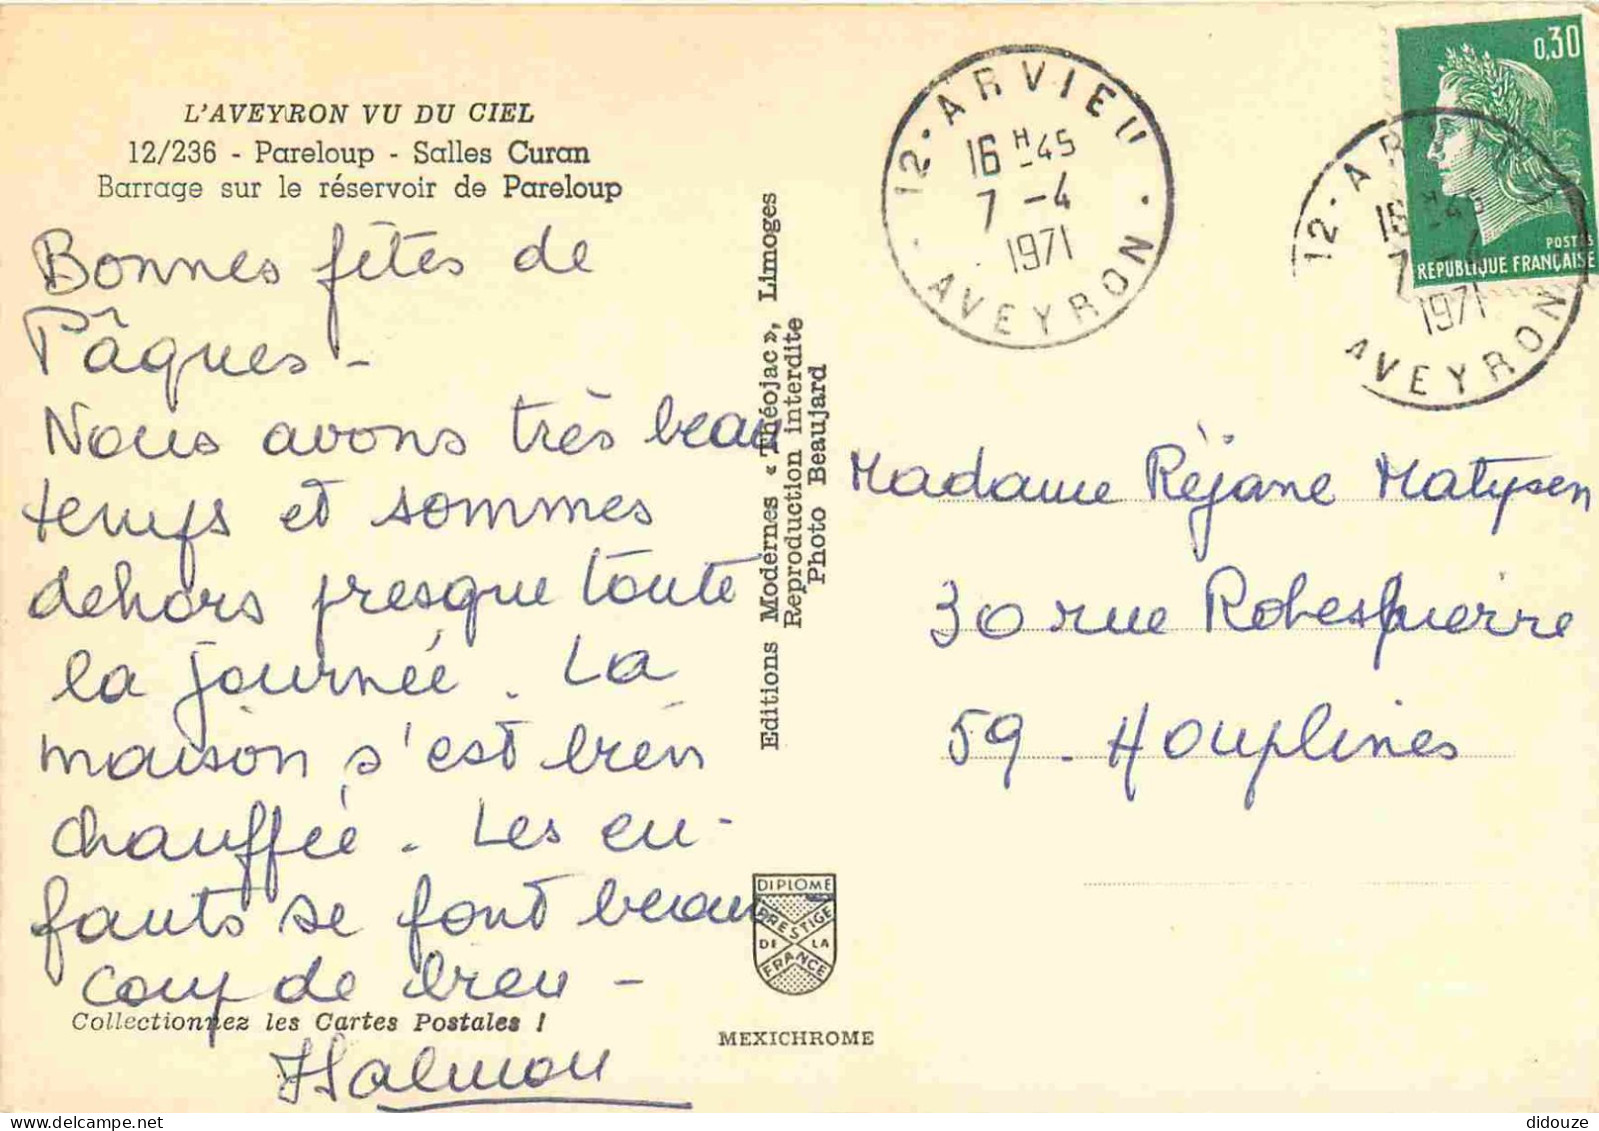 L'AVEYRON VU DU CIEL
12/236 - Pareloup - Salles Curan
Barrage sur le réservoir de Pareloup
Bonnes fêtes de
Pâques -
Nous avons très beau
temps et sommes
dehors presque toute
la journée. La
maison s'est bien
chauffée. Les en-
fants se font beau
coup de bien -
Collectionnez les Cartes Postales !
Editions Modernes « Théojac », Limoges
Reproduction interdite
Photo Beaujard
DIPLOME
PRESTIGE
DE LA
FRANCE
MEXICHROME
12 · ARVIEU ·
16 H -45
7 -4
1971
AVEYRON
0,30
POSTES
REPUBLIQUE FRANÇAISE
12 · ARVIEU
16 H -45
7 -4
1971
AVEYRON
Madame Réjane Matysen
30 rue Robespierre
59 - Houplines
didouze @ delcampe.net